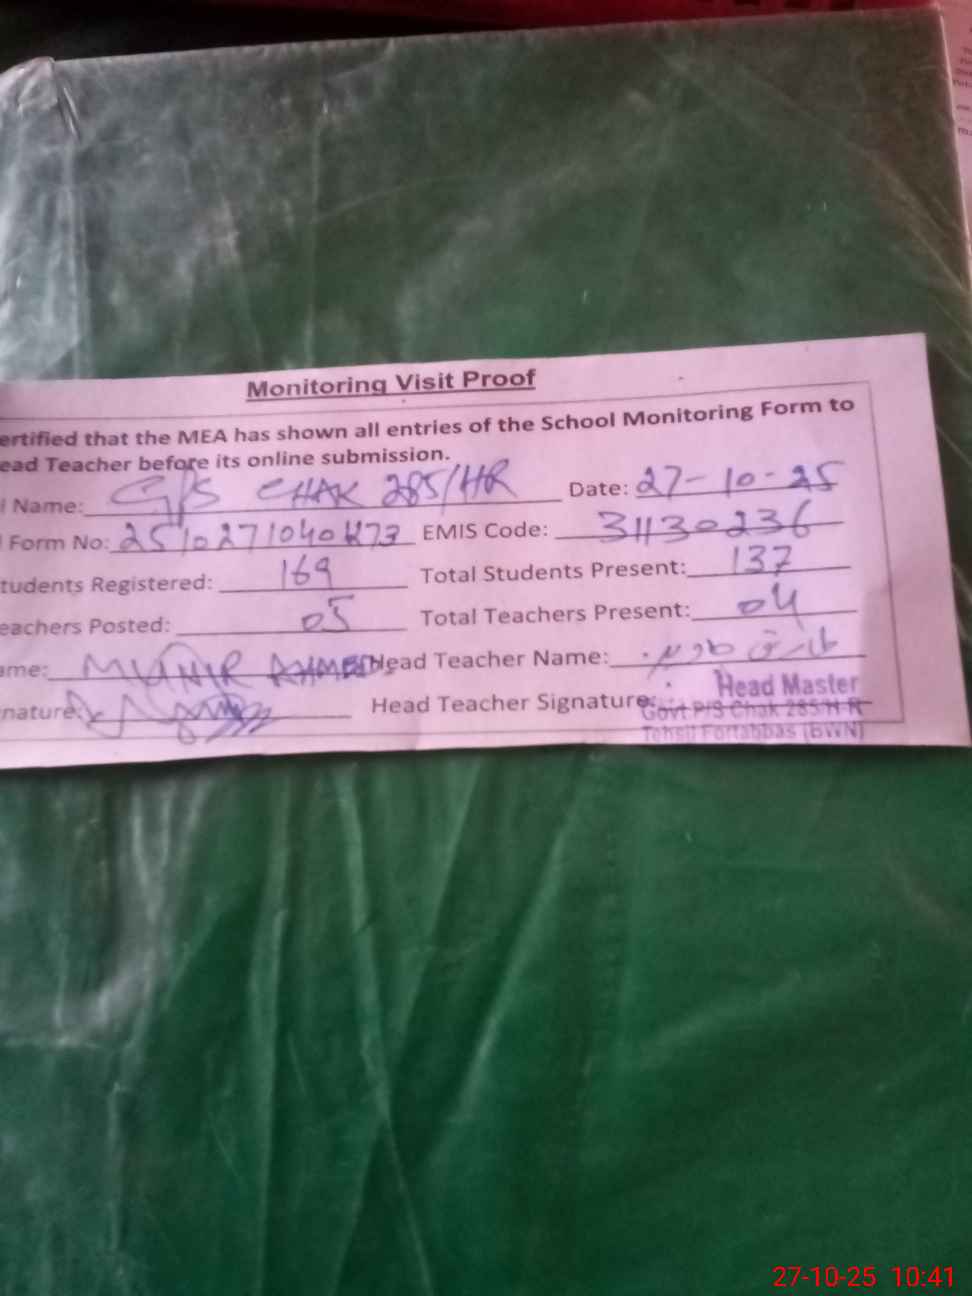 Monitoring Visit Proof
ertified that the MEA has shown all entries of the School Monitoring Form to
ead Teacher before its online submission.
l Name: G/S CHAK 285/HR Date: 27-10-25
Form No: EMIS Code: 31130236
tudents Registered: 169 Total Students Present: 137
eachers Posted: 05 Total Teachers Present: 04
ame: MUNIR AHMED Head Teacher Name: طارق
nature: Head Teacher Signature:
Head Master
Govt P/S Chak 285/H-R
Tehsil Fortabbas (BWN)
27-10-25 10:41